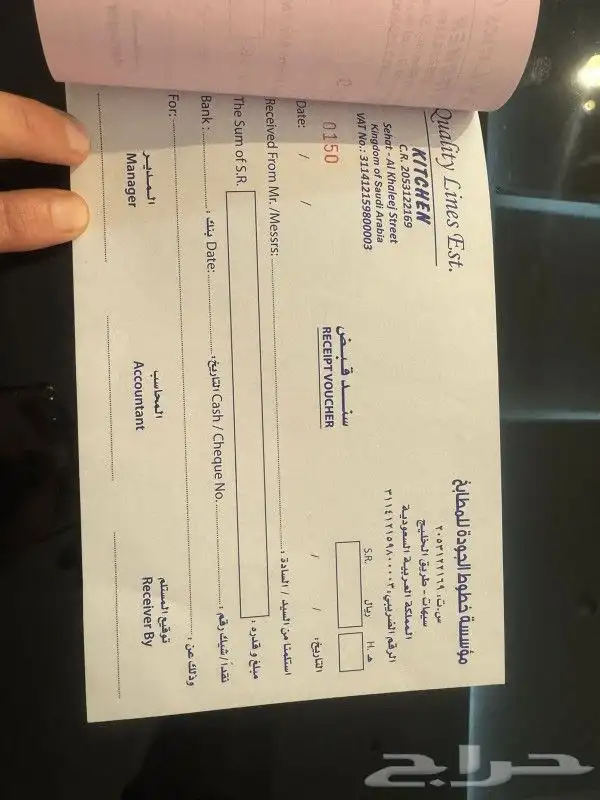 Quality Lines Est.
KITCHEN
C.R. 2053122169
Sehat - Al Khaleej Street
Kingdom of Saudi Arabia
VAT No.: 311412159800003
مؤسسة خطوط الجودة للمطابخ
س.ت: ٢٠٥٣١٢٢١٦٩
سيهات - طريق الخليج
المملكة العربية السعودية
الرقم الضريبي: ٣١١٤١٢١٥٩٨٠٠٠٠٣
سند قبض
RECEIPT VOUCHER
S.R. ريال H. هـ
0150
Date: / / / / التاريخ:
Received From Mr. /Messrs: استلمنا من السيد / السادة :
The Sum of S.R. مبلغ وقدره :
Bank : بنك : Date: التاريخ: Cash / Cheque No. نقداً / شيك رقم :
For: وذلك عن :
المدير المحاسب توقيع المستلم
Manager Accountant Receiver By
حراج